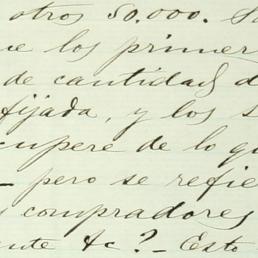 otros 50.000. Su
ue los primer
de cantidad d
fijada, y los s
cupere de lo qu
– pero se refie
s compradores
ente &c? – Esto